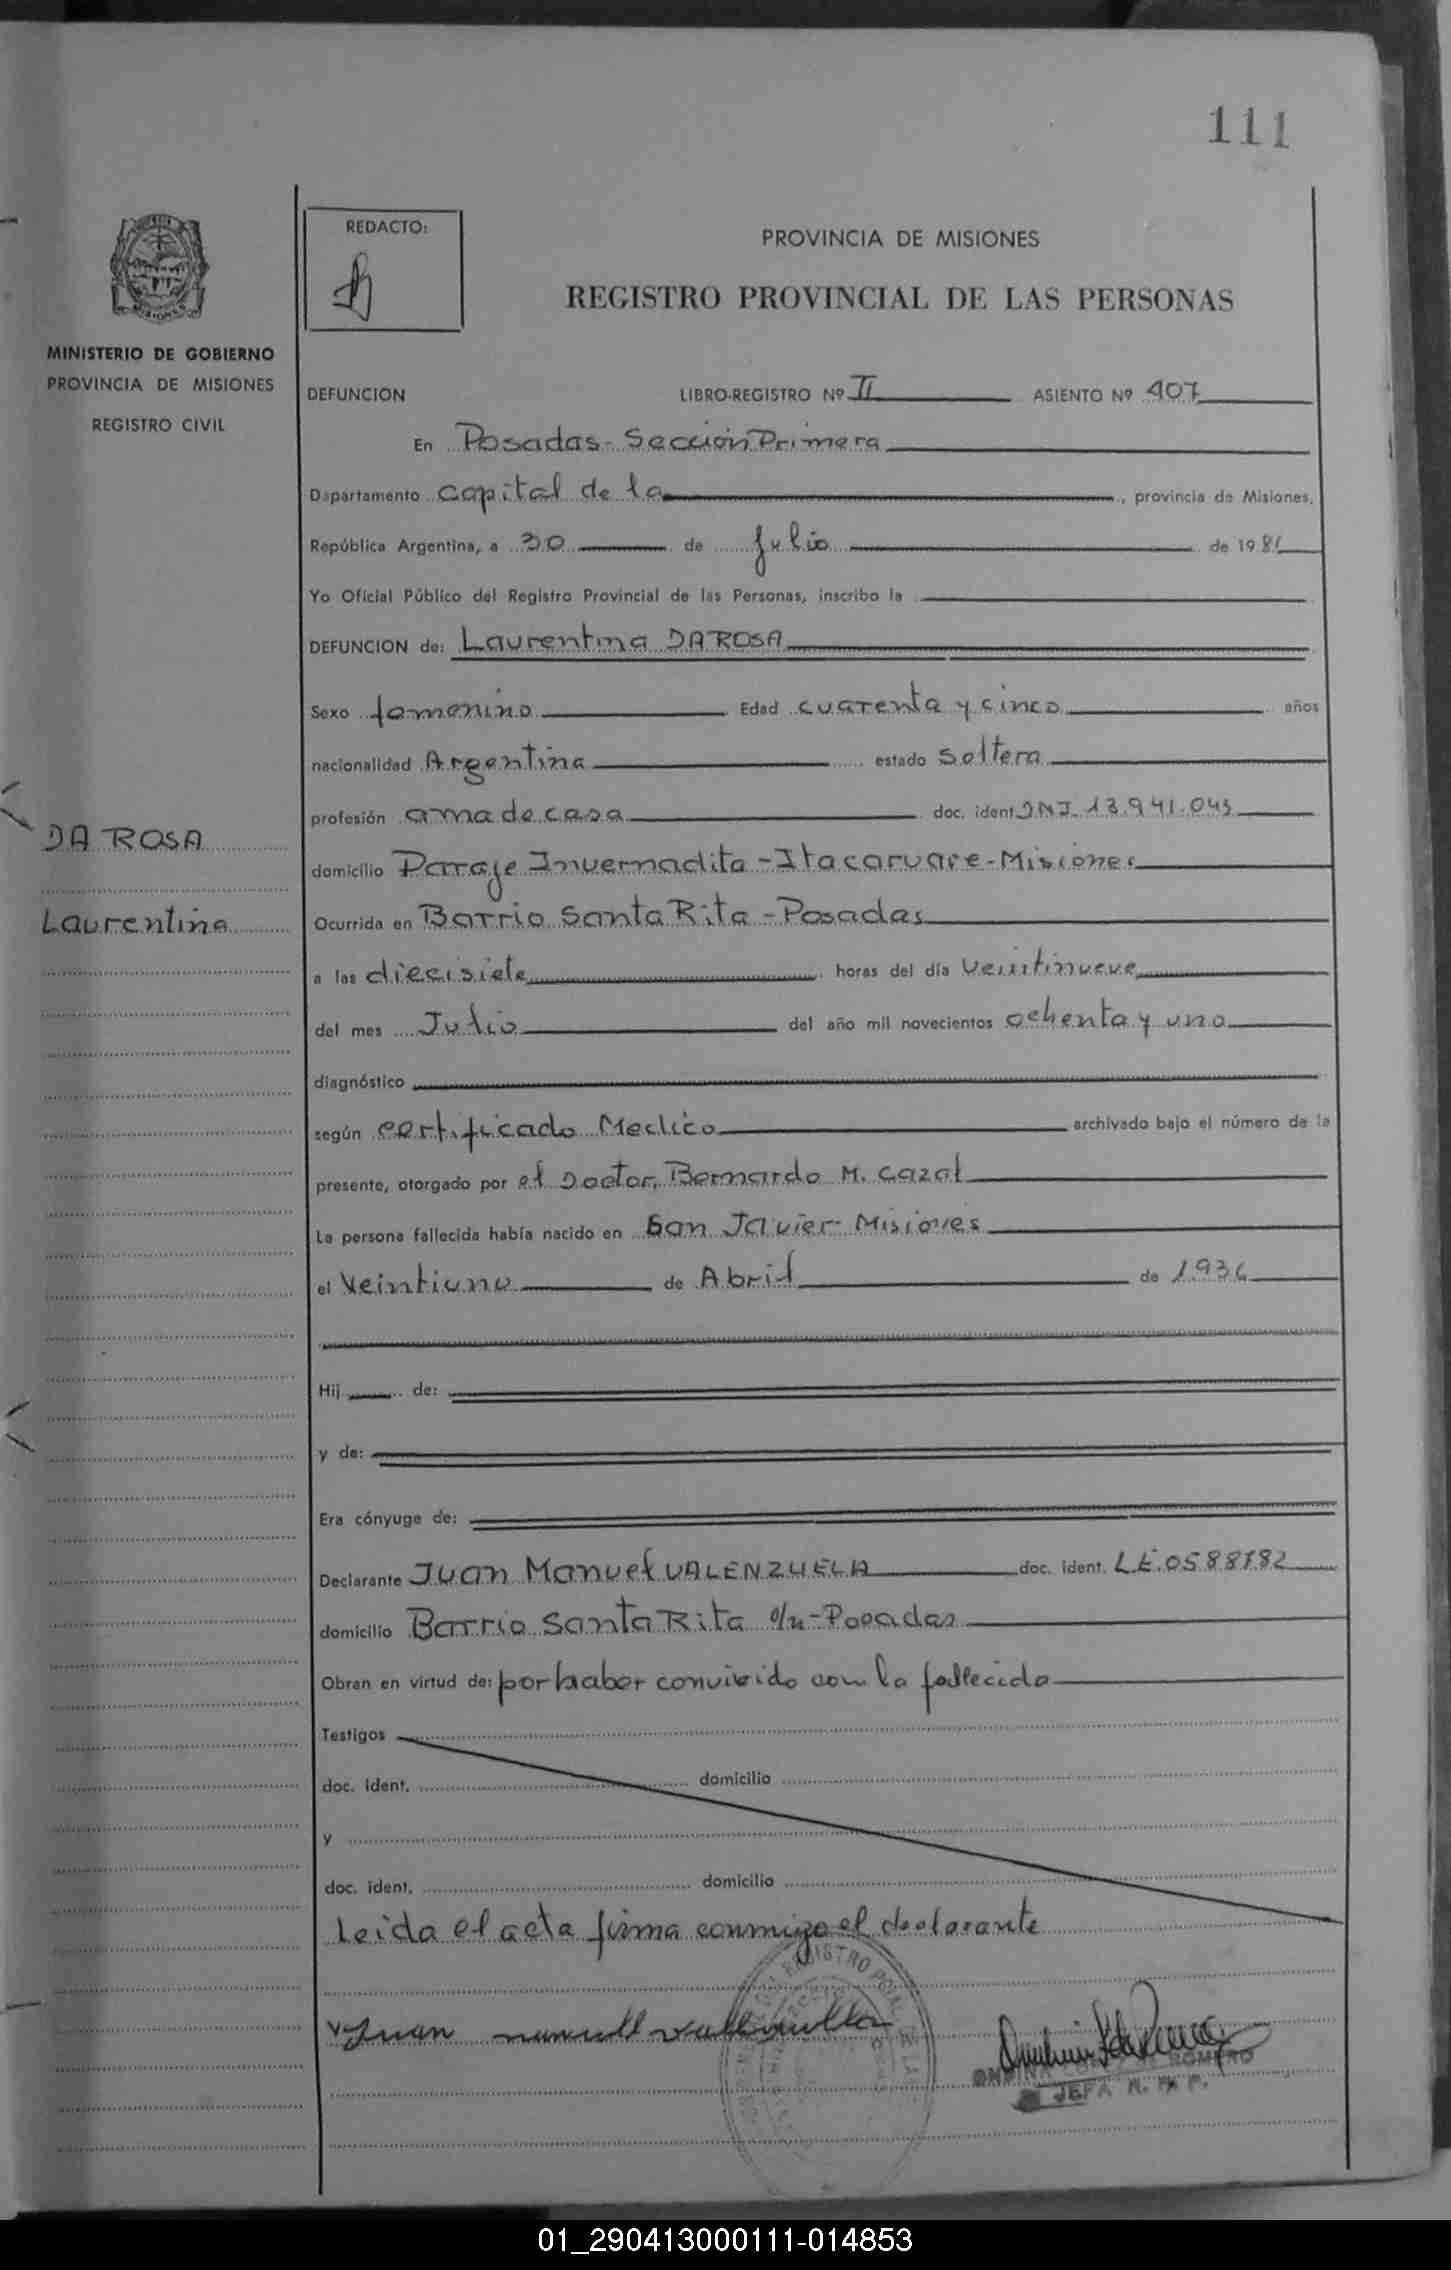 111
REDACTO:
PROVINCIA DE MISIONES
REGISTRO PROVINCIAL DE LAS PERSONAS
MINISTERIO DE GOBIERNO
PROVINCIA DE MISIONES
REGISTRO CIVIL
DEFUNCION LIBRO-REGISTRO Nº II ASIENTO Nº 407
En Posadas - Sección Primera
Departamento Capital de la , provincia de Misiones,
República Argentina, a 30 de Julio de 1981
Yo Oficial Público del Registro Provincial de las Personas, inscribo la
DEFUNCION de: Laurentina DA ROSA
Sexo femenino Edad cuarenta y cinco años
nacionalidad Argentina estado soltera
profesión ama de casa doc. ident. DNI. 13.941.043
DA ROSA
domicilio Paraje Invernadita - Itacaruare - Misiones
Laurentina
Ocurrida en Barrio Santa Rita - Posadas
a las diecisiete horas del día veintinueve
del mes Julio del año mil novecientos ochenta y uno
diagnóstico
según certificado Medico archivado bajo el número de la
presente, otorgado por el Doctor, Bernardo M. Cazal
La persona fallecida había nacido en San Javier - Misiones
el Veintiuno de Abril de 1936
Hij de:
y de:
Era cónyuge de:
Declarante Juan Manuel VALENZUELA doc. ident. LE.0588182
domicilio Barrio Santa Rita s/n - Posadas
Obran en virtud de: por haber convivido con la fallecida
Testigos
doc. ident. domicilio
y
doc. ident. domicilio
Leida el acta firma conmigo el declarante
Juan
ROMERO
JEFA R. P. P.
01_290413000111-014853